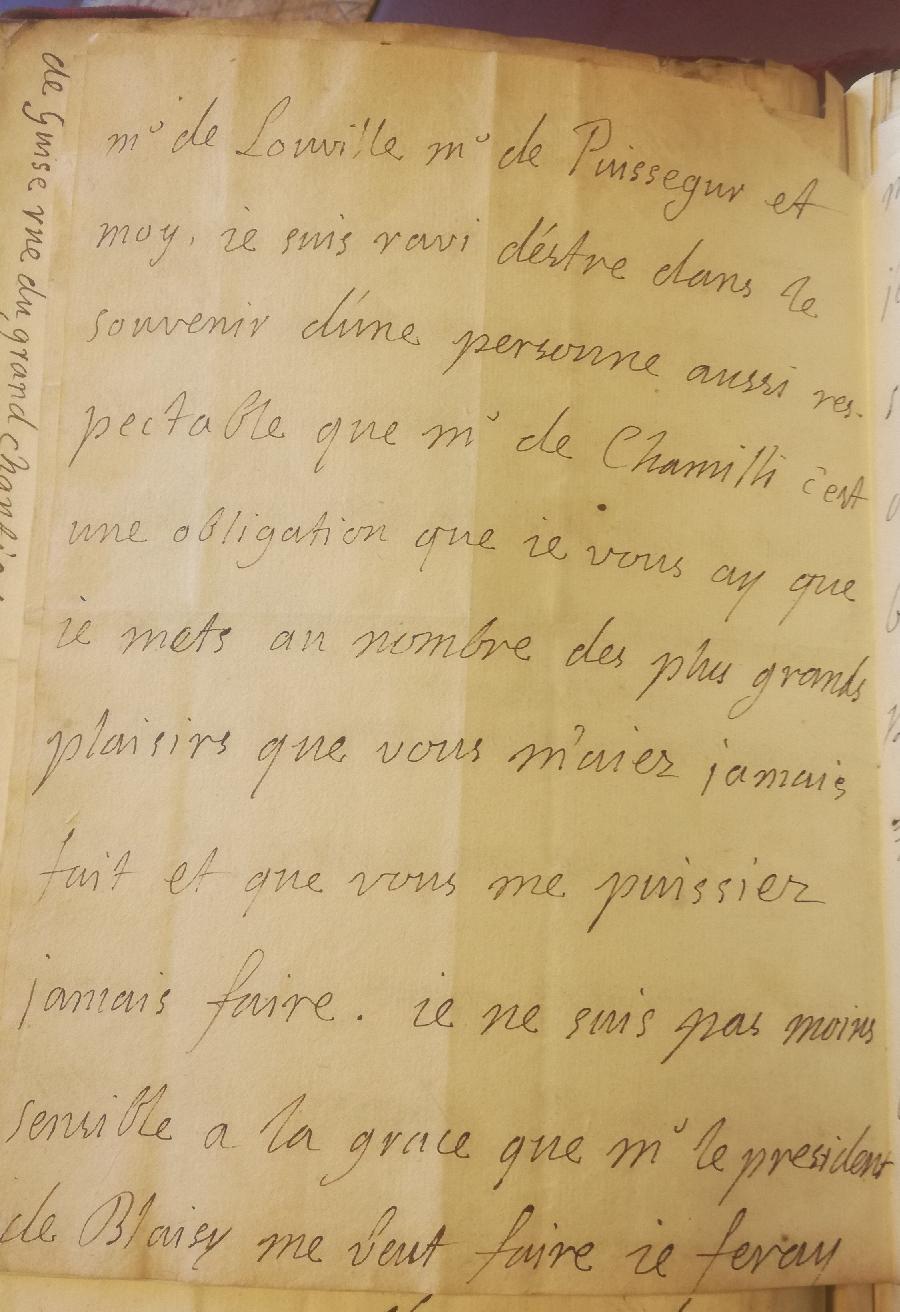 mr de Louville mr de Puissegur et
moy. ie suis ravi d'éstre dans le
souvenir d'une personne aussi res-
pectable que mr de Chamilli c'est
une obligation que ie vous ay que
ie mets au nombre des plus grands
plaisirs que vous m'aiez jamais
fait et que vous me puissiez
jamais faire. ie ne suis pas moins
sensible a la grace que mr le president
de Blaisy me veut faire ie feray
de Guise rue du grand